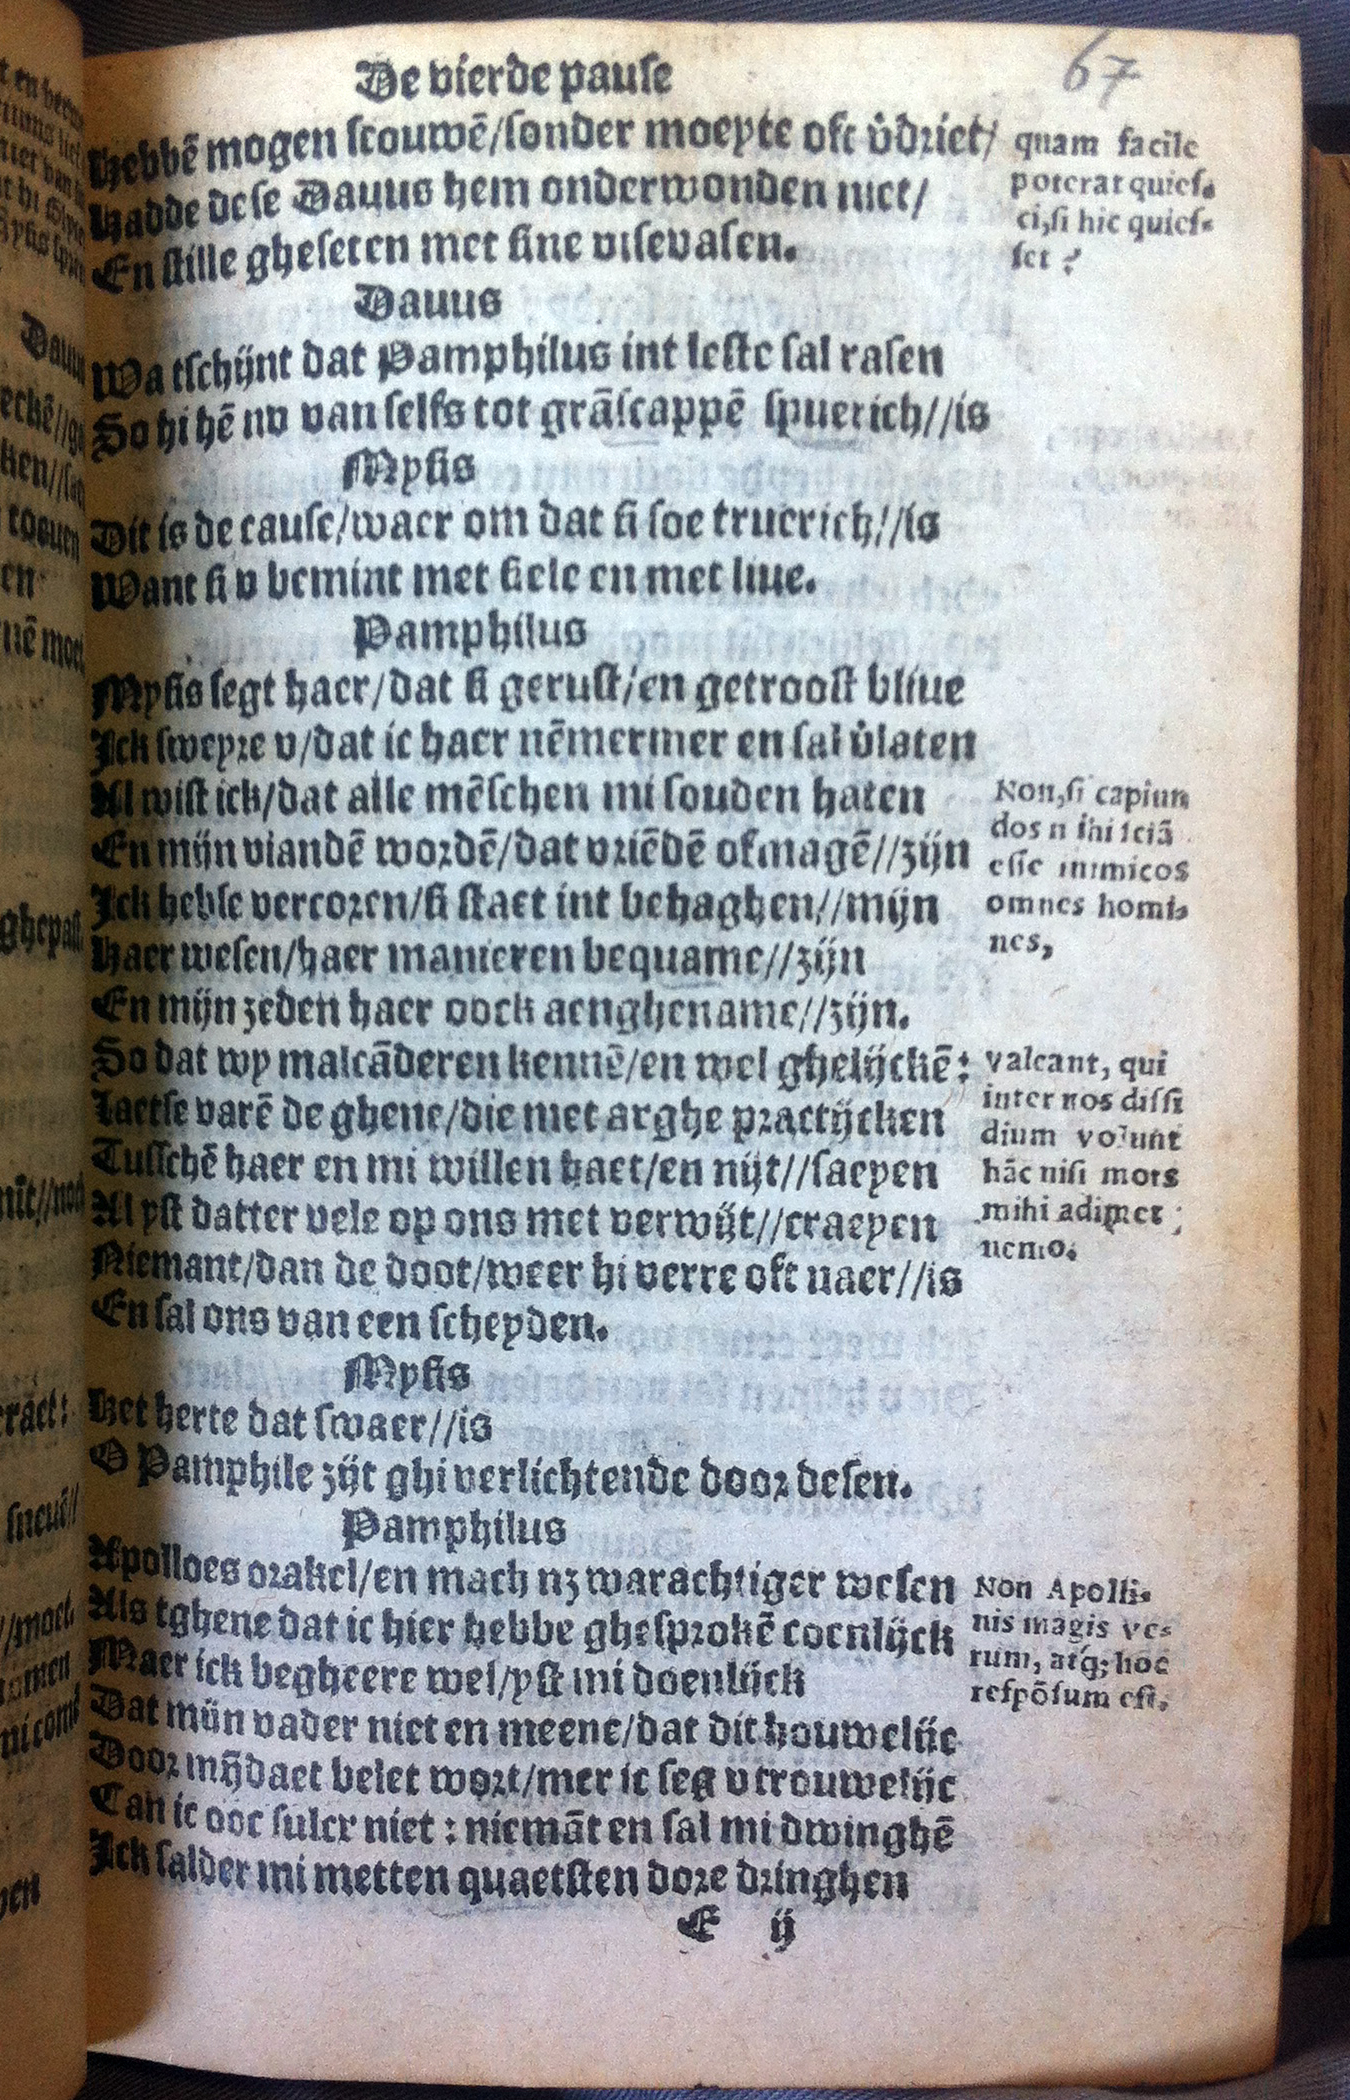 67
De vierde pause
Hebbē mogen scouwē/sonder moeyte oft v̊driet/
Hadde dese Dauus hem onderwonden niet/
En stille gheseten met sine visevasen.
quam facile
poterat quies-
ci, si hic quies-
set ?
Dauus
Wa tschijnt dat Pamphilus int leste sal rasen
So hi hē nv van selfs tot grāscappē spuerich//is
Mysis
Dit is de cause/waer om dat si soe truerich//is
Want si v bemint met siele en met liue.
Pamphilus
Mysis segt haer/dat si gerust/en getroost bliue
Ick sweyre v/dat ic haer nēmermer en sal v̊laten
Al wist ick/dat alle mēschen mi souden haten
En mijn viandē wordē/dat vriēdē of magē//zijn
Ick hebse vercoren/si staet int behaghen//mijn
Haer wesen/haer manieren bequame//zijn
En mijn zeden haer oock aenghename//zijn.
Non, si capiun
dos mihi sciā
esse inimicos
omnes homi-
nes,
So dat wy malcāderen kennē/en wel ghelijckē:
Laetse varē de ghene/die met arghe practijcken
Tusschē haer en mi willen haet/en nijt//saeyen
Al yst datter vele op ons met verwijt//craeyen
Niemant/dan de doot/weer hi verre oft naer//is
En sal ons van een scheyden.
Valeant, qui
inter nos dissi
dium volunt
hāc nisi mors
mihi adimet
nemo.
Mysis
Het herte dat swaer//is
O Pamphile zijt ghi verlichtende door desen.
Pamphilus
Apolloes orakel/en mach nz warachtiger wesen
Als tghene dat ic hier hebbe ghesprokē coenlijck
Maer ick begheere wel/yst mi doenlijck
Dat mijn vader niet en meene/dat dit houwelijc
Door mij daet belet wort/mer ic seg v trouwelijc
Can ic ooc sulcx niet : niemāt en sal mi dwinghē
Ick salder mi metten quaetsten dore dringhen
Non Apolli-
nis magis ve-
rum, atq; hoc
respōsum est.
E ij